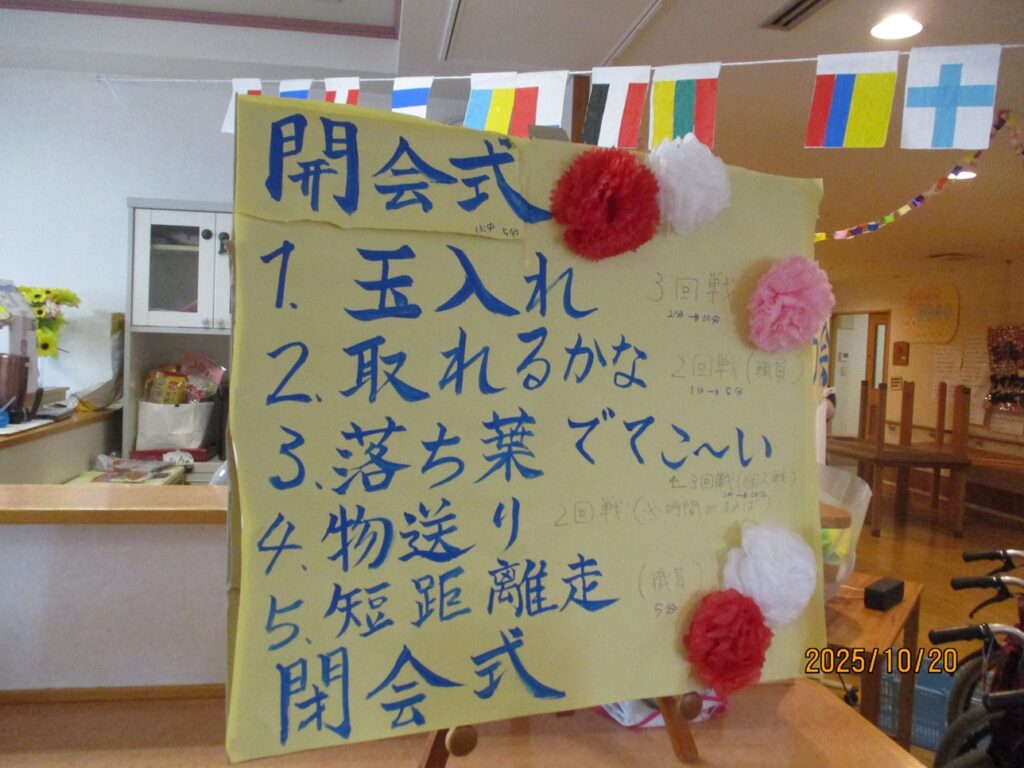 開会式
5分
1. 玉入れ 3回戦
2分→10分
2. 取れるかな 2回戦(職員)
1分→5分
3. 落ち葉でてこ〜い
←3回戦(個人戦)
4. 物送り 2回戦(時間があれば)
5. 短距離走 (職員)
5分
閉会式
2025/10/20